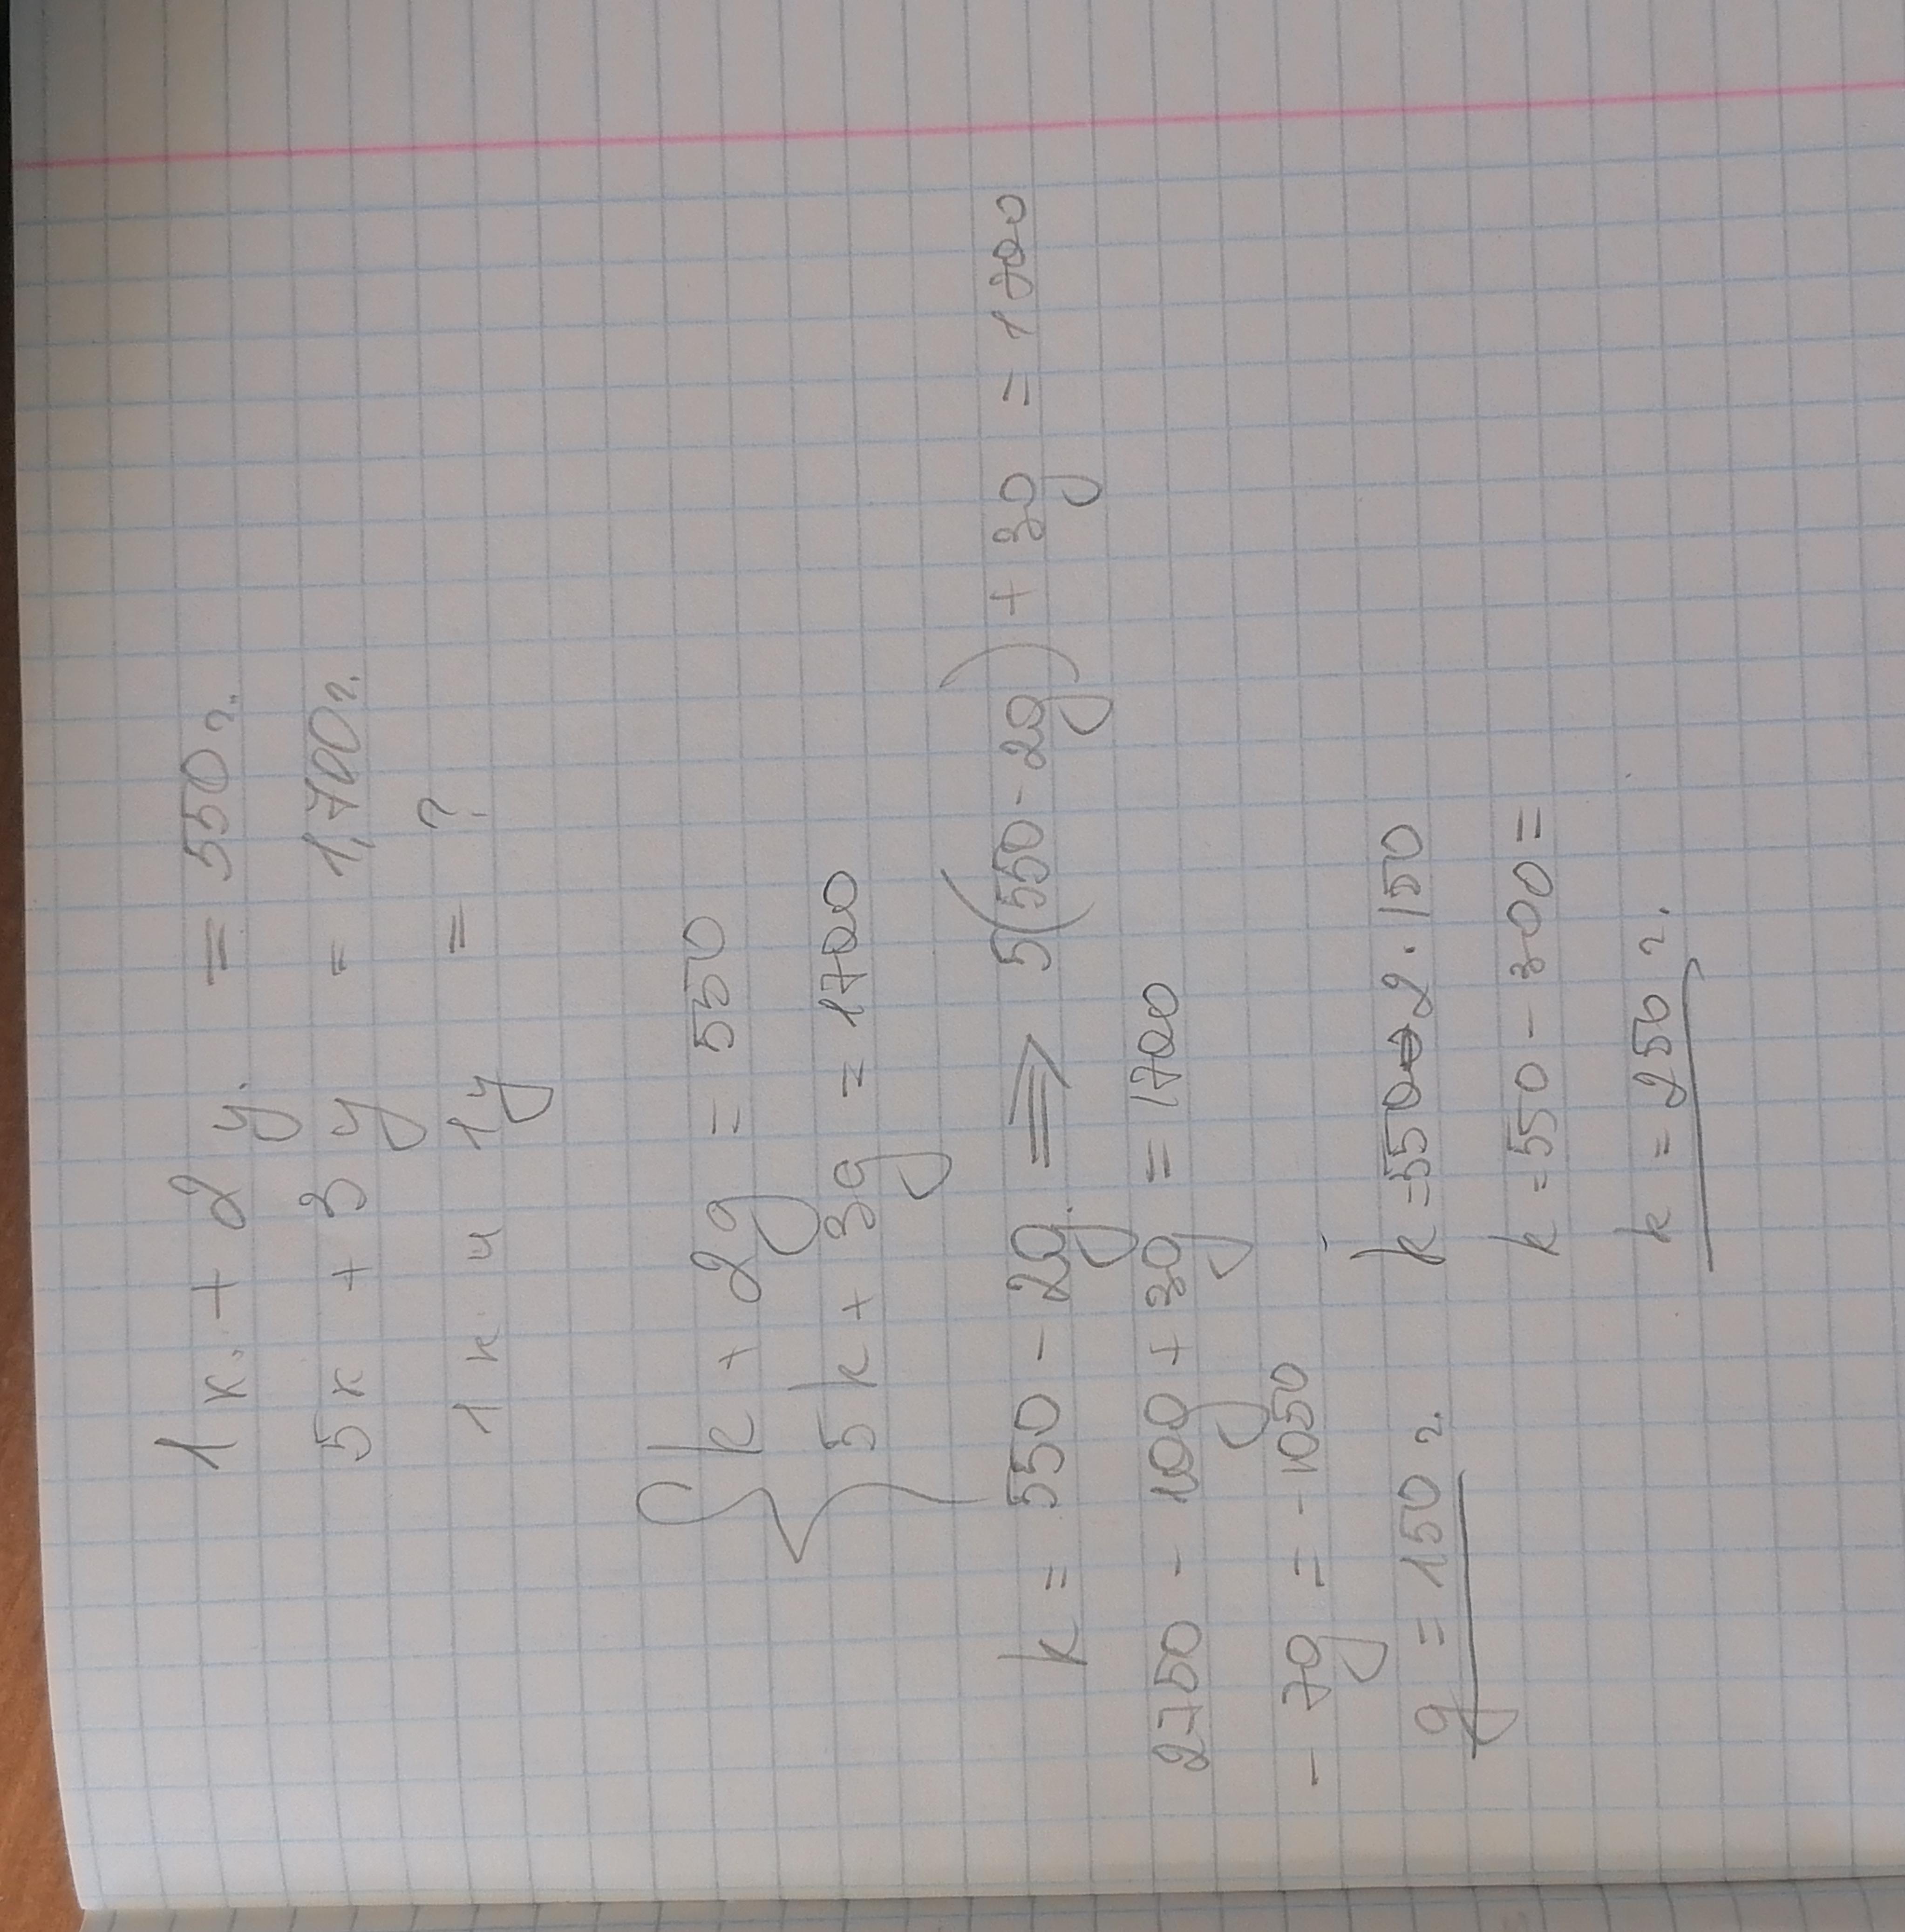 1 к. + 2 у. = 550 г.
5 к + 3 у = 1,700 г.
1 к и 1 у = ?
{ k + 2y = 550
5k + 3y = 1700
k = 550 - 2y. ⇒ 5(550 - 2y) + 3y = 1700
2750 - 10y + 3y = 1700
- 7y = - 1050
y = 150 г.
k = 550 - 2 · 150
k = 550 - 300 =
k = 250 г.